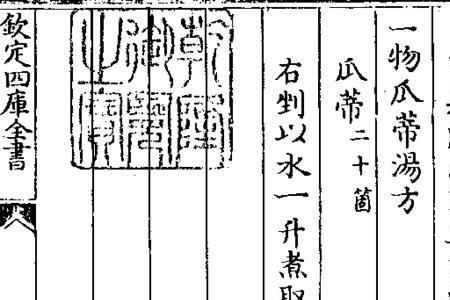 一物瓜蒂湯方
瓜蔕二十箇
右剉以水一升煮取
乾隆御覽之寶
欽定四庫全書